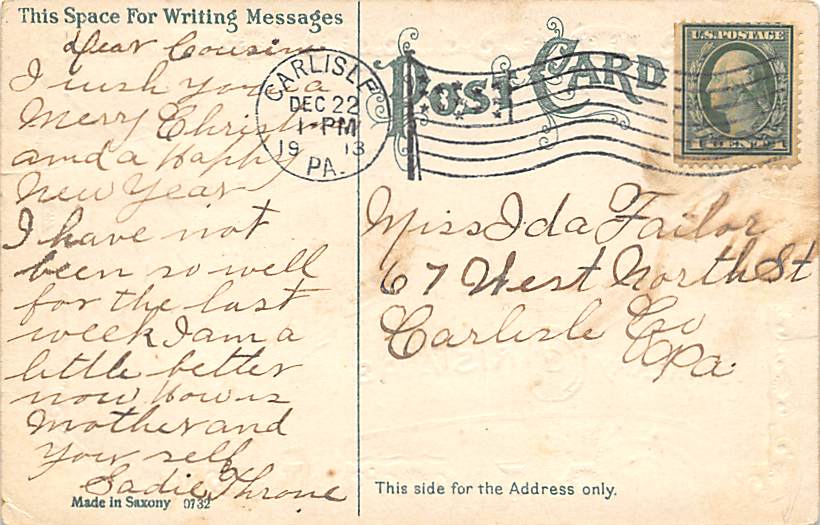 This Space For Writing Messages
dear Cousin
I wish you a
Merry Christ
and a Happy
New Year
I have not
been so well
for the last
week I am a
little better
now How is
Mother and
your self
Sadie Throne
Made in Saxony 0732
POST CARD
CARLISLE
DEC 22
1-PM
1913
PA.
U.S. POSTAGE
1 CENT 1
Miss Ida Failor
67 West North St
Carlisle Co
Pa.
This side for the Address only.